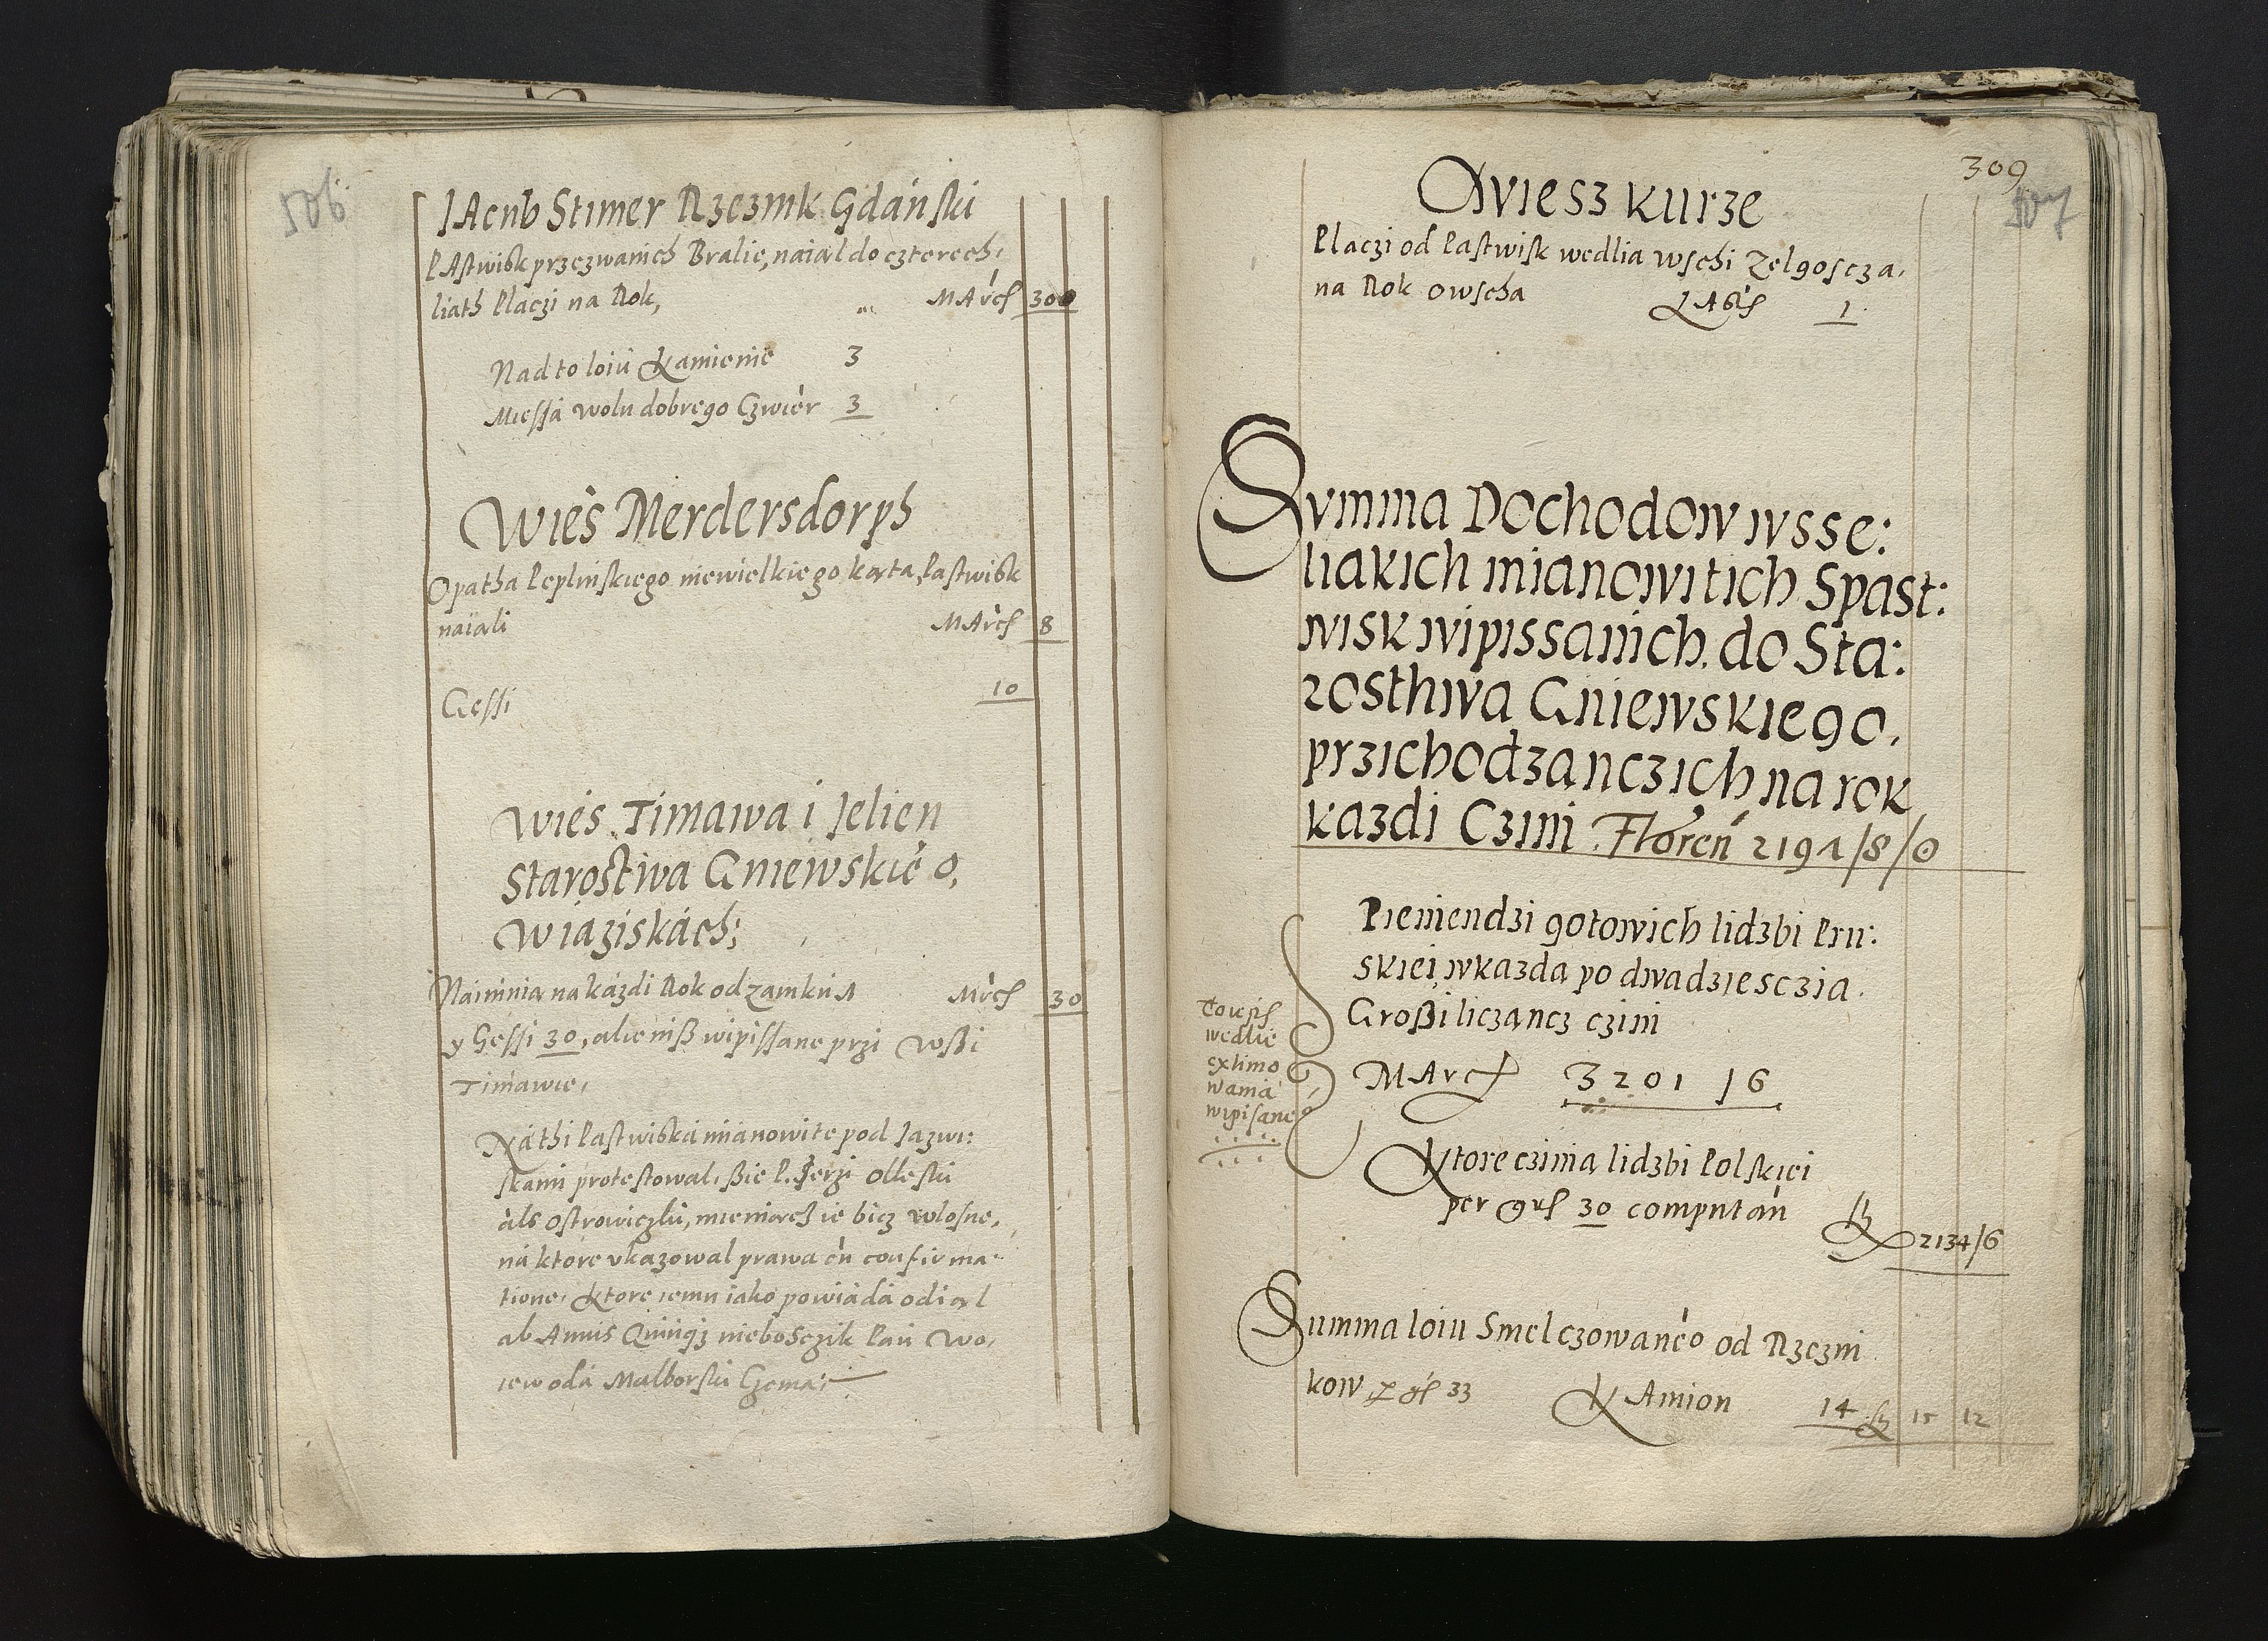 506
JAcub Stimer Rzeznik Gdański
PAstwisk przezwanich Bralie, naial do czterech
liath Placzi na Rok, March 300
Nad to loiu Kamienie 3
Miessa wolu dobrego Czwier 3
Wies Merdersdorph
Opatha Peplinskiego niewielkiego, kąta Pastwisk
naiąli March 8
Gessi 10
Wies Timawa i Jelien
Starostwa Gniewskiеo,
Wiaziskach;
Naimuia na każdi Rok od zamku
March 30
y Gessi 30, alie niß wipissane przi wßi
Timawie,
Na thi Pastwiska mianowite pod Jazwi:
skami protestowal, ßie P. Jerzi Olleski
als Ostrowiczki, mieniąch ie bicz wlosne,
na ktore vkazowal prawa cu confirma
tione, ktore iemu iako powiada odial
ab Annis Quinqz nieboszczik Pan Wo,
iewoda Malborski Czema;
309
507
Wiesz kurze
Placzi od Pastwisk wedlia wschi Zelgoscza,
na Rok owscha LAsth 1
Summa Dochodow wsse:
liakich mianowitich Spast:
wisk wipissanich, do Sta:
rosthwa Gniewskiego,
przichodzanczich na rok
kazdi Czini Floren 2191/8/0
Pieniendzi gotowich lidzbi Pru:
skiei, wkazda po dwadziesczia
Großi liczancz czini
March 3201 16
To wsis
wedlie
extimo
wania
wipisane
Ktore czinia lidzbi Polskiei
per grs 30 computan
fl 2134/6
Summa loiu Smelczowanеo od Rzezni
kow p gs 33 KAmion 14 fl 15 12